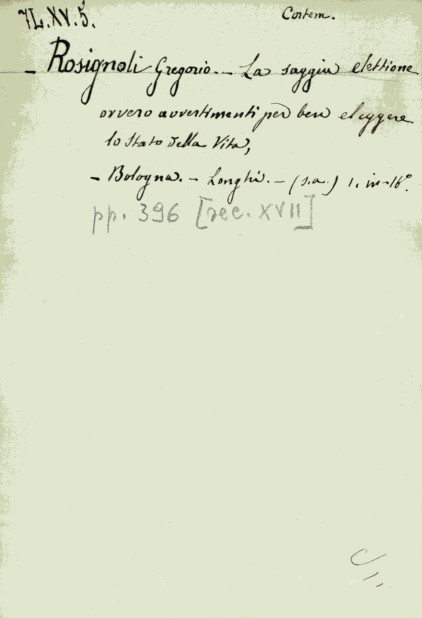 7L.XV.5. Contem.
– Rosignoli Gregorio. – La saggia elettione
ovvero avvertimenti per ben eleggere
lo Stato della Vita,
– Bologna. – Longhi. – (s.a.) 1. in-16°.
pp. 396 [sec. XVII]